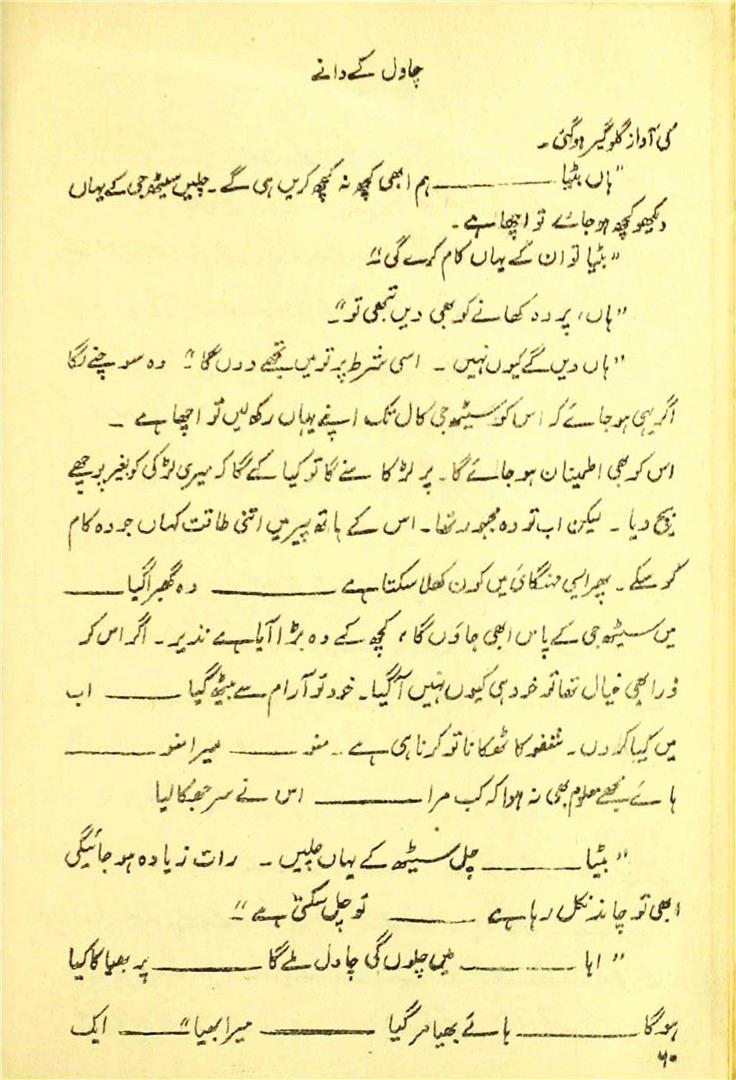 چاول کے دانے
کی آواز گلوگیر ہوگئی۔
"ہاں بٹیا ــــــــ ہم ابھی کچھ نہ کچھ کریں ہی گے۔ چلیں سیٹھ جی کے یہاں
دیکھو کچھ ہو جائے تو اچھا ہے۔
"بٹیا تو ان کے یہاں کام کرے گی"؟
"ہاں، پر وہ کھانے کو بھی دیں تبھی تو"۔
"ہاں دیں گے کیوں نہیں۔ اسی شرط پر تو میں تجھے دوں گا" وہ سوچنے لگا
اگر یہی ہو جائے کہ اس کو سیٹھ جی کال تک اپنے یہاں رکھ لیں تو اچھا ہے۔
اس کو بھی اطمینان ہو جائے گا۔ پر لڑکا سنے گا تو کیا کہے گا کہ میری لڑکی کو بغیر پوچھے
بیچ دیا۔ لیکن اب تو وہ مجبور تھا۔ اس کے ہاتھ پیر میں اتنی طاقت کہاں جو وہ کام
کر سکے۔ پھر ایسی مہنگائی میں کون کھلا سکتا ہے ــــــــ وہ گھبرا گیا ــــــــ
میں سیٹھ جی کے پاس ابھی جاؤں گا، کچھ کہے وہ بڑا آیا ہے نذیر۔ اگر اس کو
ذرا بھی خیال تھا تو خود ہی کیوں نہیں آ گیا۔ خود تو آرام سے بیٹھ گیا ــــــــ اب
میں کیا کروں۔ غفو کا ٹھکانا تو کرنا ہی ہے۔ منو ــــــــ میرا منو ــــــــ
ہائے مجھے معلوم بھی نہ ہوا کہ کب مرا ــــــــ اس نے سر جھکا لیا
"بٹیا ــــــــ چل سیٹھ کے یہاں چلیں۔ رات زیادہ ہو جائیگی
ابھی تو چاند نکل رہا ہے ــــــــ تو چل سکتی ہے"
"ابا ــــــــ میں چلوں گی چاول ملے گا ــــــــ پر بھیا کا کیا
ہوگا ــــــــ ہائے بھیا مر گیا ــــــــ میرا بھیا" ــــــــ ایک
۶۰